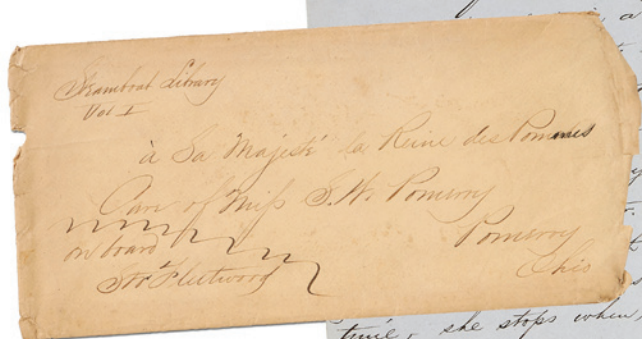 Steamboat Library
Vol I
à Sa Majesté la Reine des Pommes
Care of Miss S. W. Pomeroy
Pomeroy
Ohio
on board
Str Fleetwood
time, she stops when